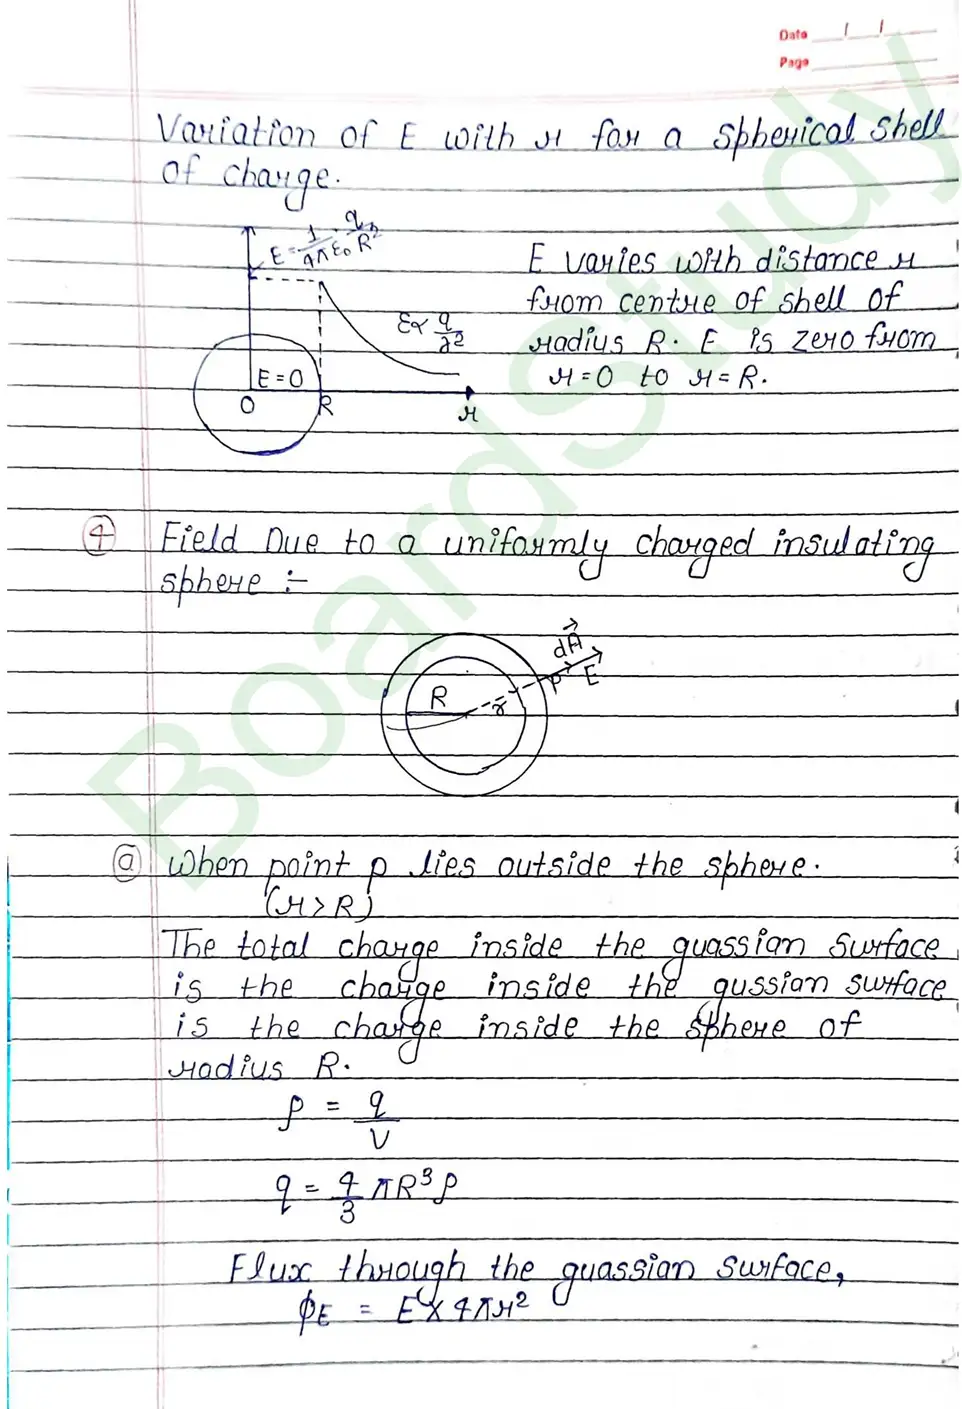 Date / /
Page
Variation of E with r for a spherical shell
of charge.
E = 1/4πε0 q/R²
E ∝ q/r²
E = 0
O R r
E varies with distance r
from centre of shell of
radius R. E is zero from
r = 0 to r = R.
4 Field Due to a uniformly charged insulating
sphere :-
dA
P E
R r
a When point p lies outside the sphere.
(r > R)
The total charge inside the guassian surface
is the charge inside the gussian surface
is the charge inside the sphere of
radius R.
ρ = q/V
q = 4/3 πR³ρ
Flux through the guassian surface,
ϕE = E × 4πr²
BoardStudy